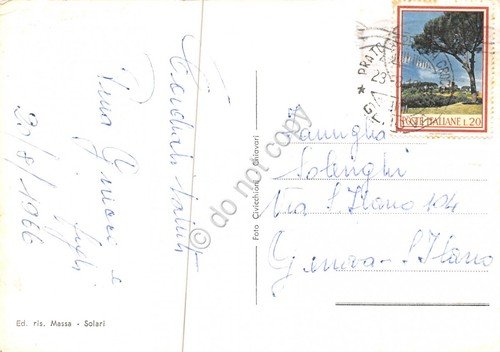 Cordiali saluti
Pina Grieci e
figli
20/8/1966
Ed. ris. Massa - Solari
Foto Civicchioni - Chiavari
do not copy
PRATO
POSTE ITALIANE L. 20
Famiglia
Solenghi
Via S Ilario 104
Genova - S Ilario